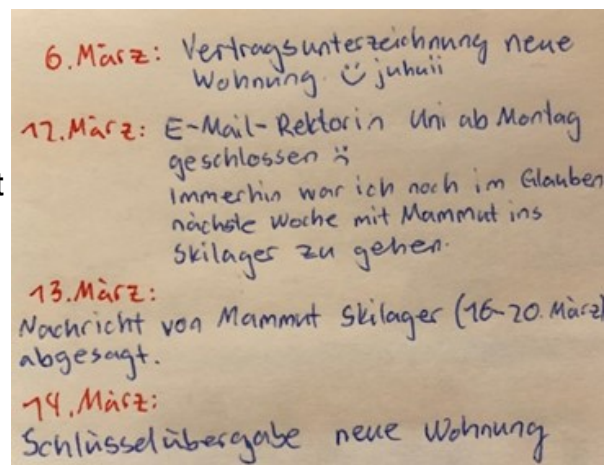 6. März: Vertragsunterzeichnung neue
Wohnung. ü juhuii
12. März: E-Mail-Rektorin Uni ab Montag
geschlossen :(
Immerhin war ich noch im Glauben
nächste Woche mit Mammut ins
Skilager zu gehen.
13. März:
Nachricht von Mammut Skilager (16-20. März)
abgesagt.
14. März:
Schlüsselübergabe neue Wohnung